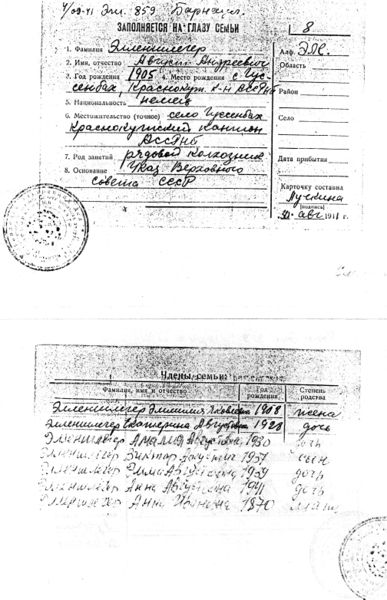 4/09-41 Эш. 859 Барнаул.
ЗАПОЛНЯЕТСЯ НА ГЛАВУ СЕМЬИ
8
1. Фамилия Элленшлегер
Алф. ЭЛ.
2. Имя, отчество Август Андреевич
Область
3. Год рождения 1905 4. Место рождения с. Гус-
сенбах, Краснокут. р-н АССРНП
Район
5. Национальность немец
6. Местожительство (точное) село Гуссенбах
Село
Краснокутский Кантон
АССРНП
Дата прибытия
7. Род занятий рядовой колхозник
8. Основание Указ Верховного
совета СССР
Карточку составил
(подпись)
30 авг 1941 г.
Члены семьи:
Фамилия, имя и отчество Год рождения Степень родства
Элленшлегер Эмилия Яковлевна 1908 жена
Элленшлегер Екатерина Августовна 1928 дочь
Элленшлегер Амалия Августовна 1930 дочь
Элленшлегер Виктор Августович 1937 сын
Элленшлегер Августовна 1939 дочь
Элленшлегер Анна Августовна 1941 дочь
Элленшлегер Анна 1870 мать